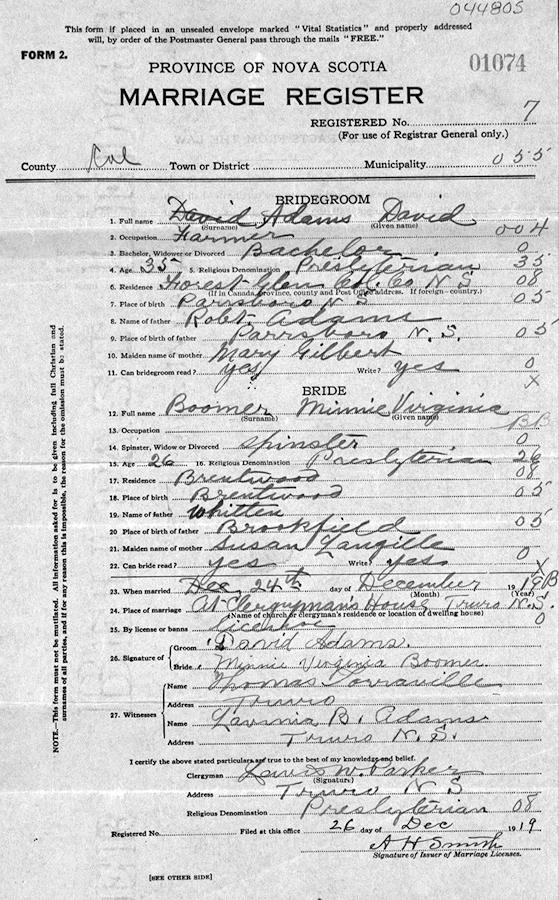 044805
This form if placed in an unsealed envelope marked "Vital Statistics" and properly addressed
will, by order of the Postmaster General pass through the mails "FREE."
FORM 2.
PROVINCE OF NOVA SCOTIA 01074
MARRIAGE REGISTER
REGISTERED No. 7
(For use of Registrar General only.)
County Col Town or District Municipality 055
BRIDEGROOM
1. Full name David Adams David
(Surname) (Given name)
2. Occupation Farmer 004
3. Bachelor, Widower or Divorced Bachelor 0
4. Age 35 5. Religious Denomination Presbyterian 35
6. Residence Forest Glen Col. Co N S 08
(If in Canada, province, county and Post Office address. If foreign - country.)
7. Place of birth Parrsboro N S 05
8. Name of father Robt. Adams
9. Place of birth of father Parrsboro N. S. 05
10. Maiden name of mother Mary Gilbert
11. Can bridegroom read? yes Write? yes 0
X
BRIDE
12. Full name Boomer Minnie Virginia
(Surname) (Given name)
13. Occupation BB
14. Spinster, Widow or Divorced Spinster 0
15. Age 26 16. Religious Denomination Presbyterian 26
17. Residence Brentwood 08
18. Place of birth Brentwood 05
19. Name of father Whitten
20 Place of birth of father Brookfield 05
21. Maiden name of mother Susan Langille
22. Can bride read? yes Write? yes 0
X
23. When married Dec 24th day of December 1919 B
(Month) (Year)
24. Place of marriage At Clergyman's House Truro N. S.
(Name of church or clergyman's residence or location of dwelling house)
25. By license or banns license 0
26. Signature of Groom David Adams.
Bride Minnie Virginia Boomer
27. Witnesses
Name Thomas
Address Truro
Name Lavinia B. Adams
Address Truro N. S.
I certify the above stated particulars are true to the best of my knowledge and belief.
Clergyman W. Parker
(Signature)
Address Truro N S
Religious Denomination Presbyterian 08
Registered No. Filed at this office 26 day of Dec 1919
A H Smith
Signature of Issuer of Marriage Licenses.
[SEE OTHER SIDE]
NOTE.—This form must not be mutilated. All information asked for is to be given including full Christian and
surnames of all parties, and if for any reason this is impossible, the reason for the omission must be stated.